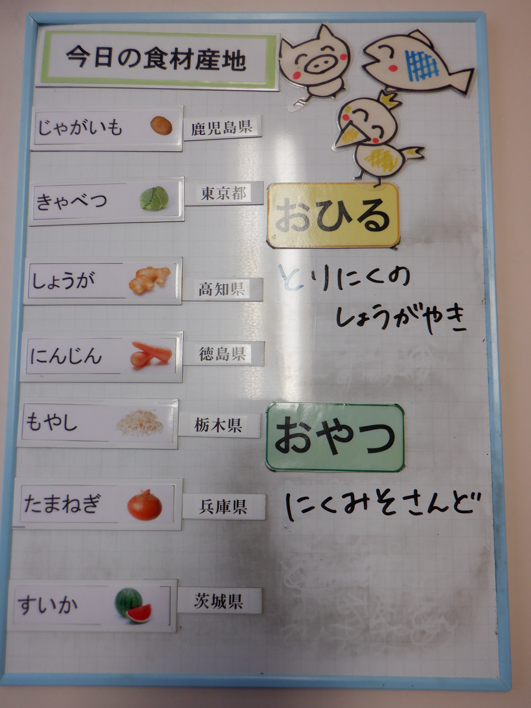 今日の食材産地
じゃがいも 鹿児島県
きゃべつ 東京都
しょうが 高知県
にんじん 徳島県
もやし 栃木県
たまねぎ 兵庫県
すいか 茨城県
おひる
とりにくの
しょうがやき
おやつ
にくみそさんど